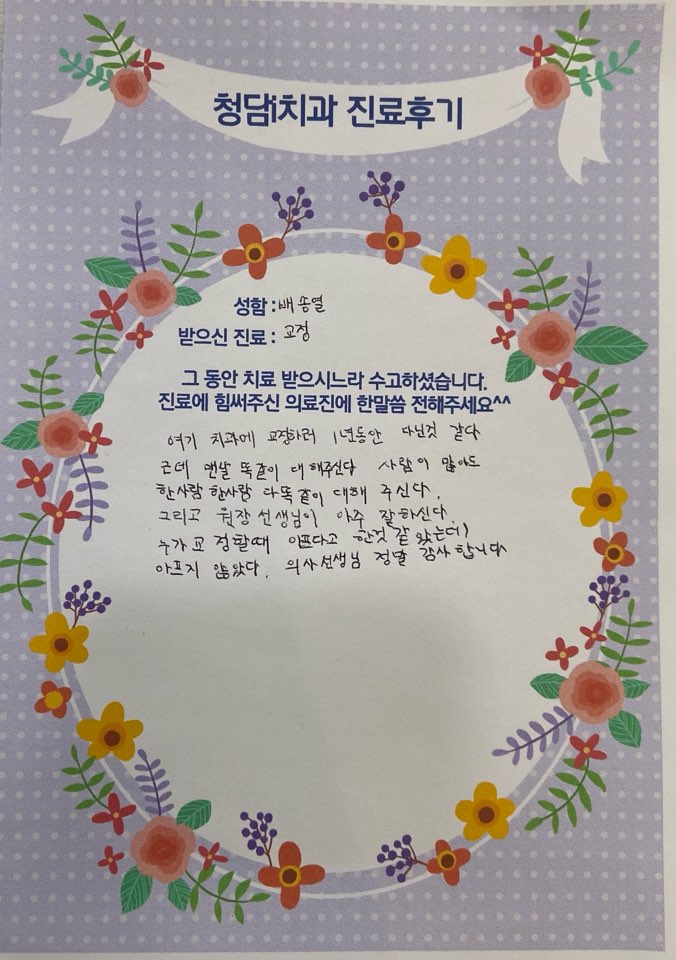 청담i치과 진료후기
성함 : 배송열
받으신 진료 : 교정
그 동안 치료 받으시느라 수고하셨습니다.
진료에 힘써주신 의료진에 한말씀 전해주세요^^
여기 치과에 교정하러 1년동안 다닌것 같다
근데 맨날 똑같이 대해주신다 사람이 많아도
한사람 한사람 다똑같이 대해 주신다.
그리고 원장선생님이 아주 잘하신다.
누가 교정할때 아프다고 한것 같았는데
아프지 않았다. 의사선생님 정말 감사합니다